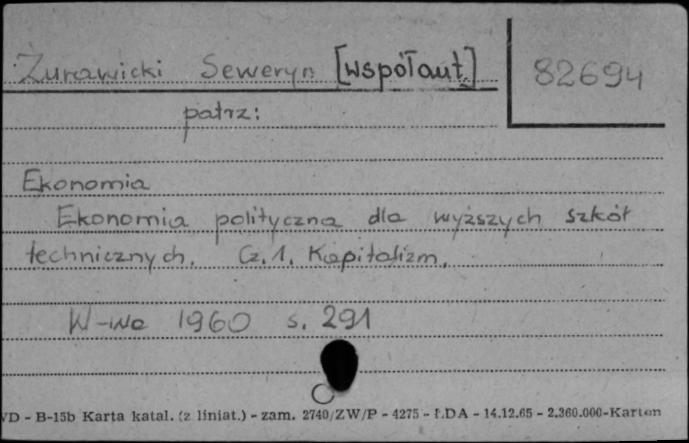 Żurawicki Seweryn [współaut.]
82694
patrz:
Ekonomia
Ekonomia polityczna dla wyższych szkół
technicznych. Cz. 1. Kapitalizm.
W-wa 1960 s. 291
VD - B-15b Karta katal. (z liniat.) - zam. 2740/ZW/P - 4275 - ŁDA - 14.12.65 - 2.360.000-Karton